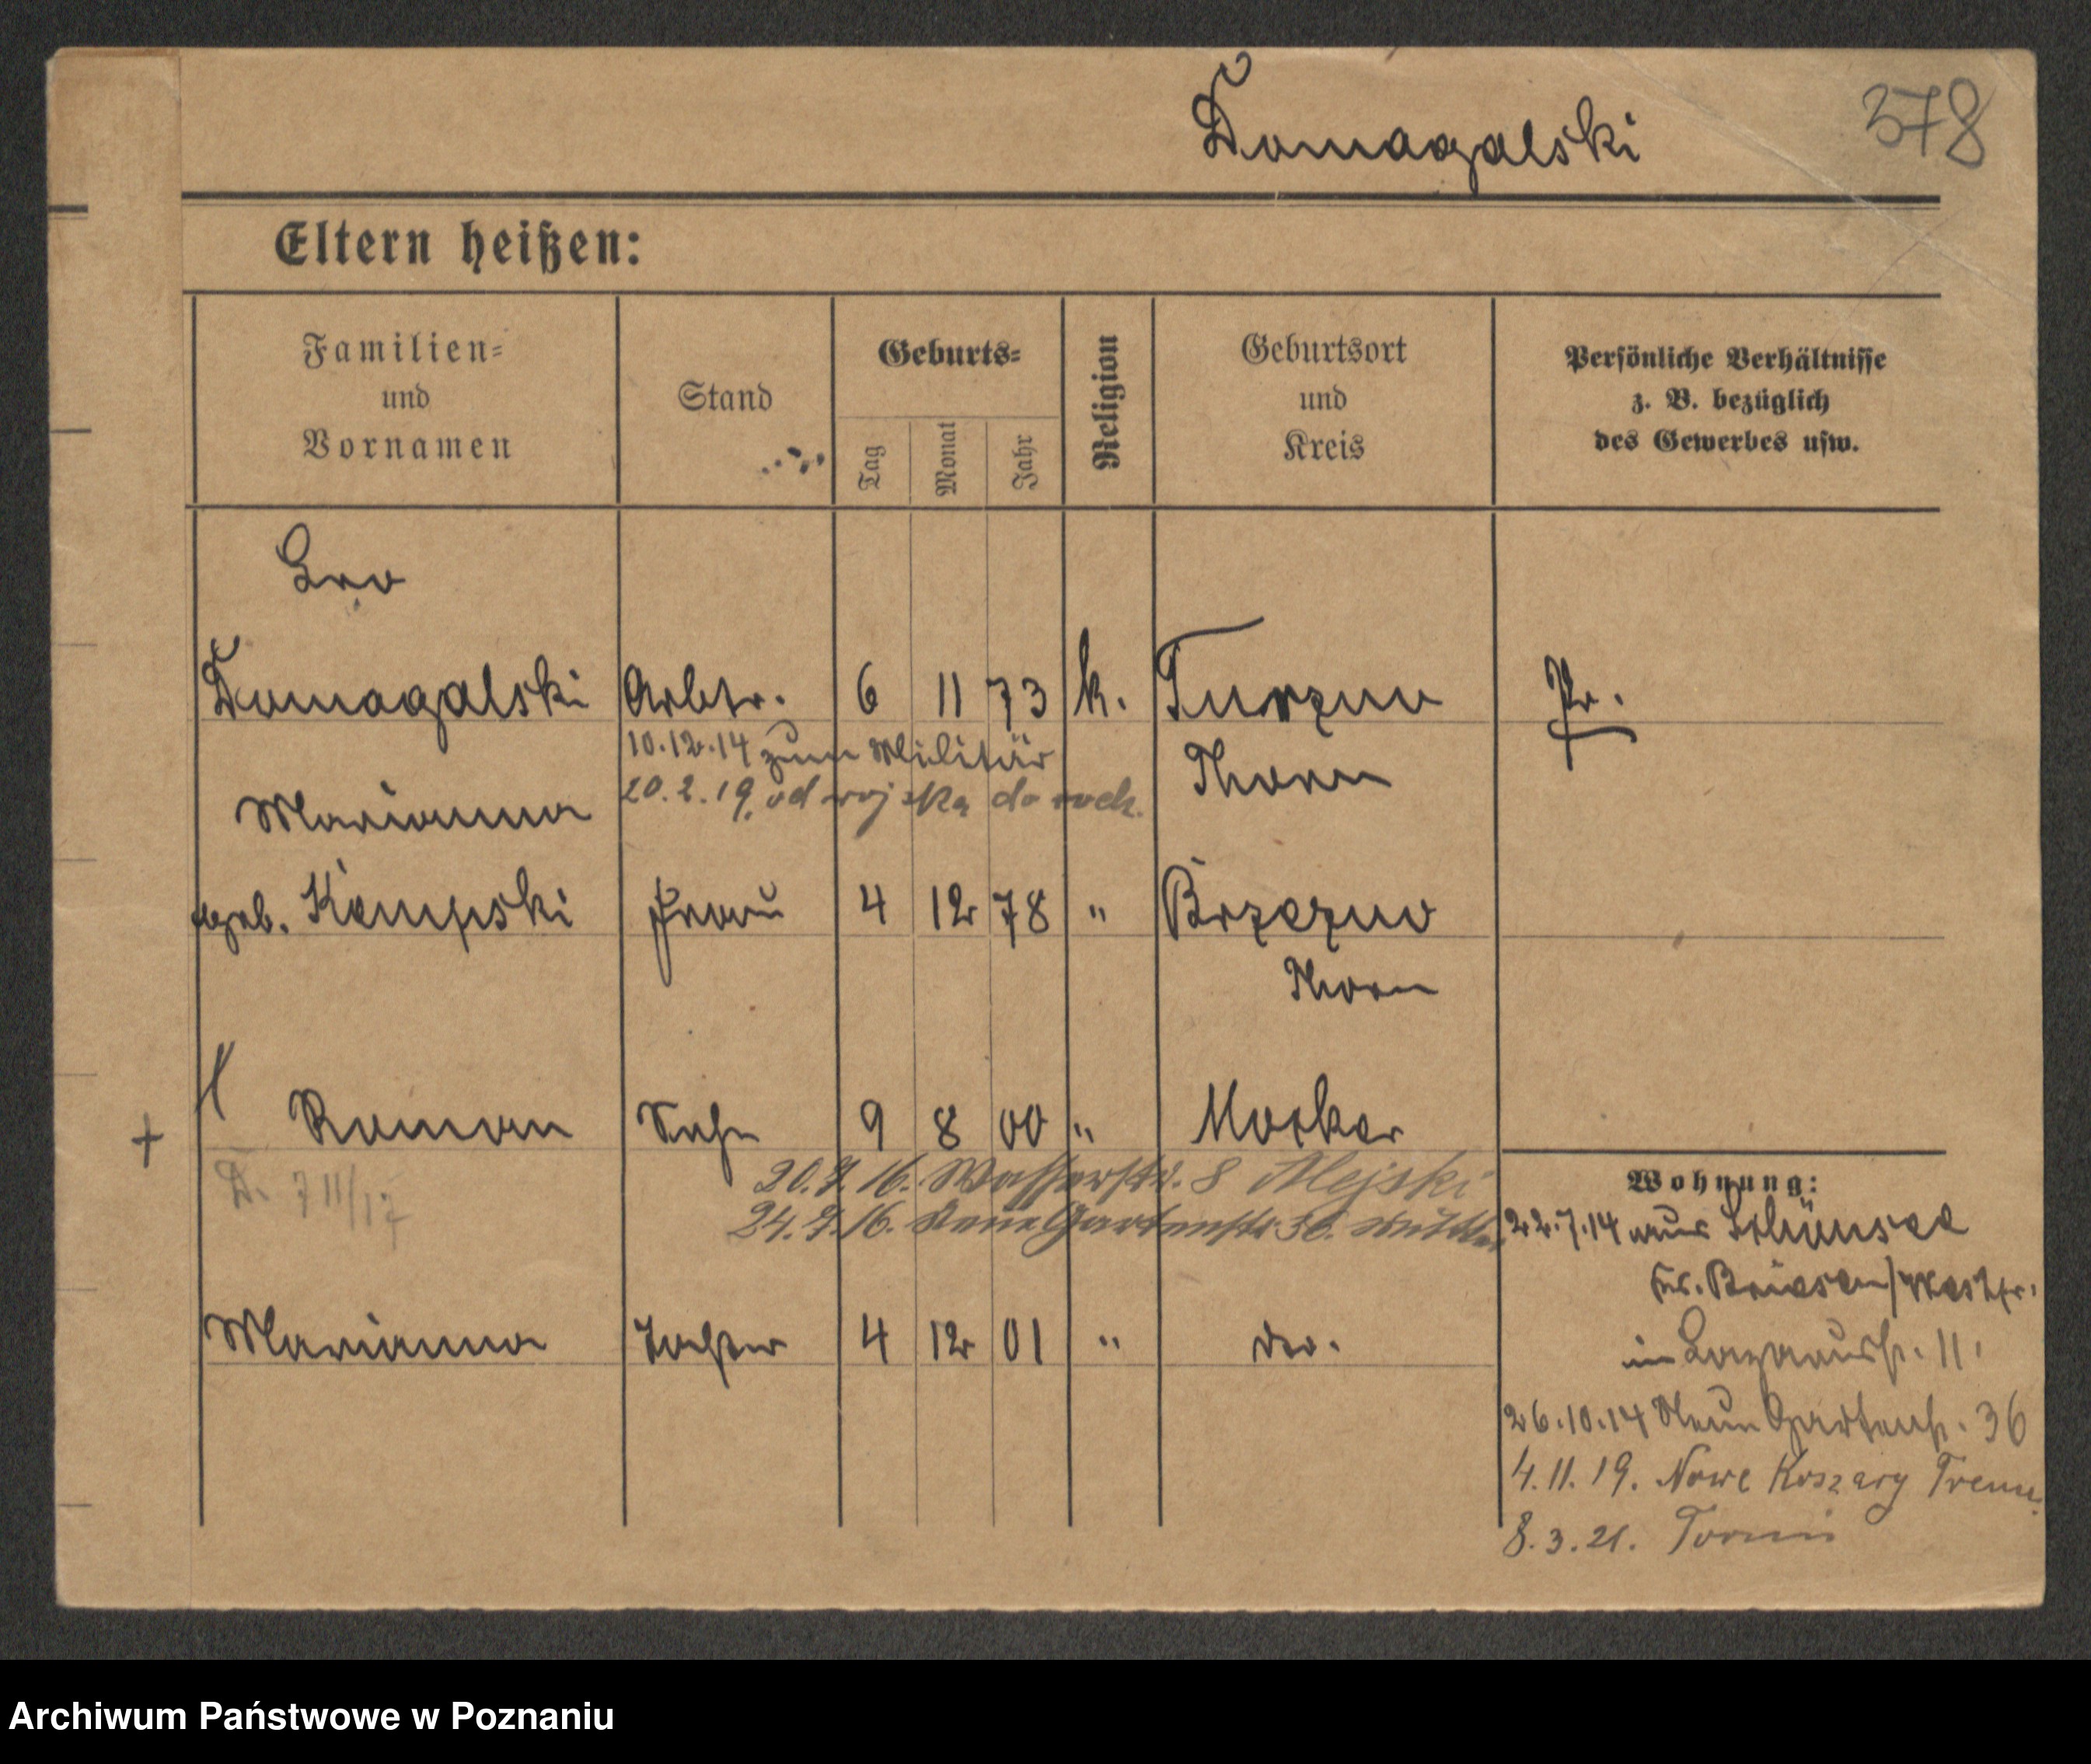 Domagalski
378
Eltern heißen:
Familien=
und
Vornamen
Stand
Geburts=
Tag
Monat
Jahr
Religion
Geburtsort
und
Kreis
Persönliche Verhältnisse
z. B. bezüglich
des Gewerbes usw.
Leo
Domagalski Arbtr. 6 11 73 k. Turzno Pr.
10.12.14 zum Militär
Thorn
20.2.19. od wojska do
Marianna
geb. Kempski Frau 4 12 78 " Brzezno
Thorn
+ Roman Sohn 9 8 00 " Mocker
D. 7 11/17
20.7.16. Wasserstr. 8 Alejski
24.7.16. Neue Gartenstr. 36.
Marianna Tochter 4 12 01 " do.
Wohnung:
22.7.14 aus Schönsee
Kr. Briesen/Westpr.
in Lazarusstr. 11.
26.10.14 Neue Gartenstr. 36
4.11.19. Nowe Koszary
8.3.21. Toruń
Archiwum Państwowe w Poznaniu